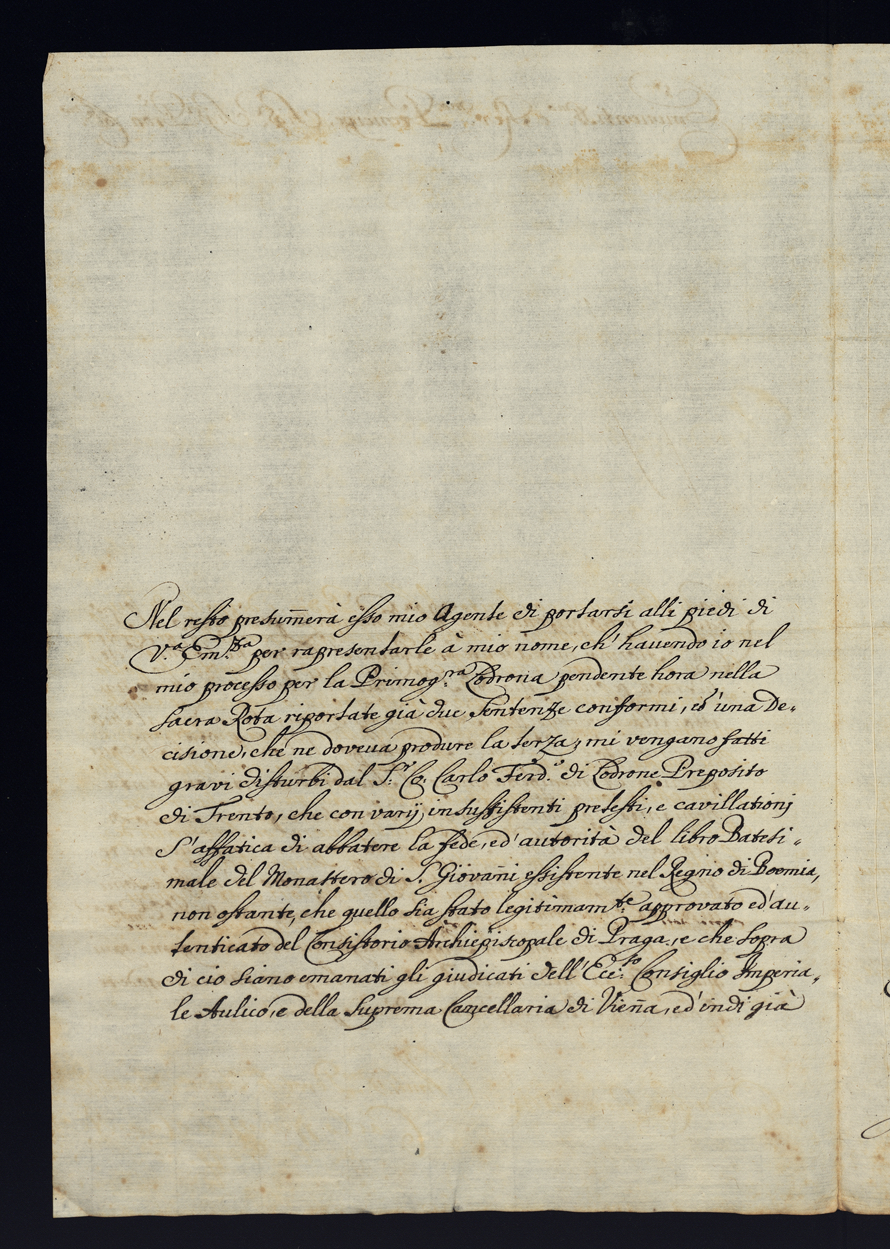 Nel resto presum̄erà esso mio Agente di portarsi alli piedi di
V.ᵃ Em.ᶻᵃ per rapresentarle à mio nome, ch'hauendo io nel
mio processo per la Primog.ʳᵃ Lodrona pendente hora nella
Sacra Rota riportate già due Sentenze conformi, ed'una De=
cisione, che ne doveua produre la terza, mi vengano fatti
gravi disturbi dal S.ʳ Co. Carlo Ferd.º di Lodrone Preposito
di Trento, che con varij insussistenti pretesti, e cavillationj
s'affatica di abbatere la fede, ed'autorità del libro Batesi=
male del Monastero di S. Giovañi essistente nel Regno di Boemia,
non ostante, che quello sia stato legitimam.ᵗᵉ approvato ed'au=
tenticato del Consistorio Archiepiscopale di Praga, e che sopra
di cio siano emanati gli giudicati dell'Ecc.ˢᵒ Consiglio Imperia=
le Aulico, e della Suprema Cancellaria di Vieña, ed'indi già